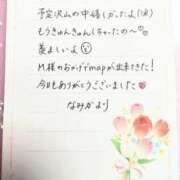 予定沢山の中帰しがたよ(涙)
もうきゅんきゅんしちゃったの〜
羨よしいよ
M様のおかげでmapが出来てきた!
今日もありがとうございました
なみかより